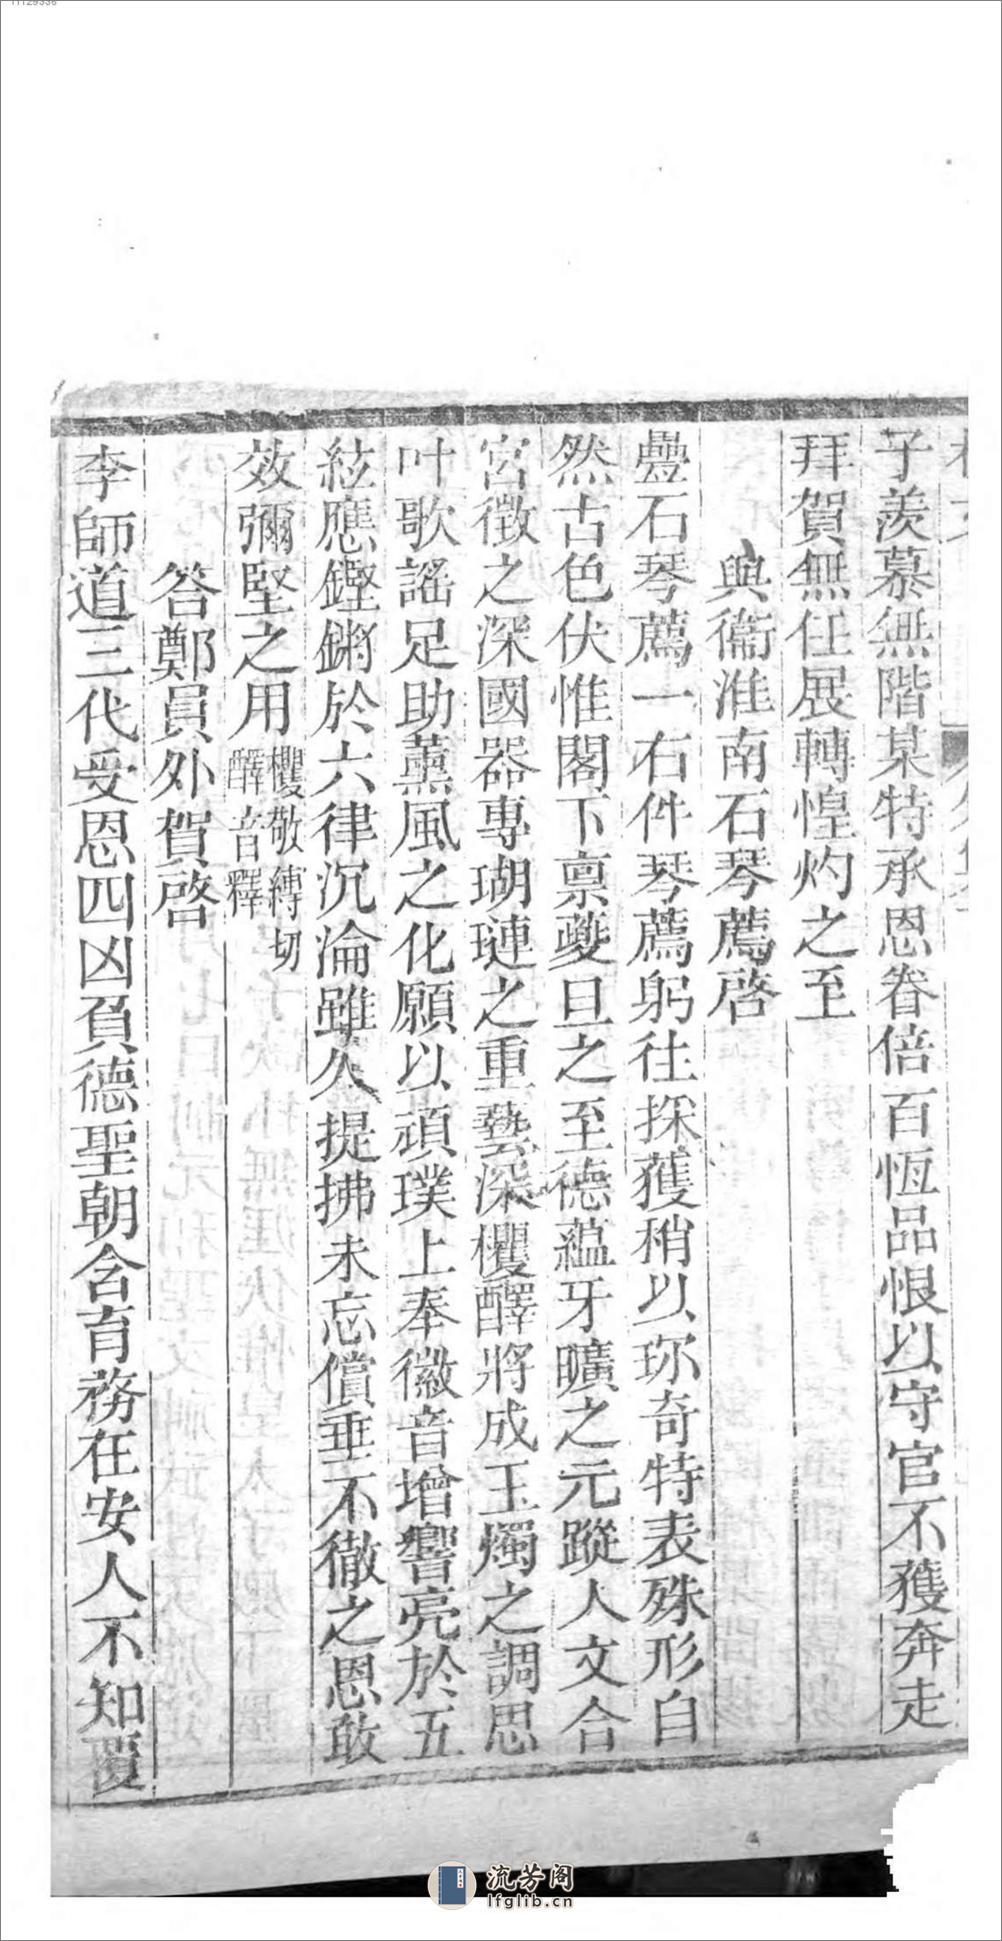 子羨慕無階某特承恩眷倍百恆品恨以守官不獲奔走
拜賀無任展轉惶灼之至
與衞淮南石琴薦啓
疊石琴薦一右件琴薦躬往採獲稍以珎奇特表殊形自
然古色伏惟閣下禀夔旦之至德蘊牙曠之元蹤人文合
宮徵之深國器專瑚璉之重藝深欔醳將成玉燭之調思
叶歌謠足助薰風之化願以頑璞上奉徽音增響亮於五
絃應鏗鏘於六律沉淪雖久提拂未忘儻垂不徹之恩敢
效彌堅之用欔敬縛切醳音釋
答鄭員外賀啓
李師道三代受恩四凶負德聖朝含育務在安人不知覆
流芳阁
lfglib.cn